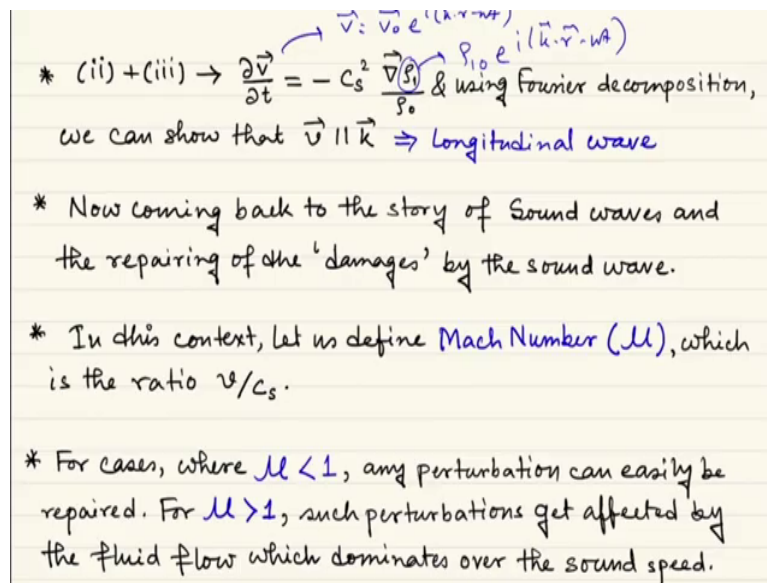 v⃗ = v⃗₀ e^{i(k⃗·r⃗-ωt)}
* (ii) + (iii) → ∂v⃗/∂t = - C_s² ∇⃗ρ₁/ρ₀ & using Fourier decomposition, ρ₁₀ e^{i(k⃗·r⃗-ωt)}
we can show that v⃗ || k⃗ ⇒ Longitudinal wave
* Now coming back to the story of Sound waves and
the repairing of the 'damages' by the sound wave.
* In this context, let us define Mach Number (M), which
is the ratio v/C_s.
* For cases, where M < 1, any perturbation can easily be
repaired. For M > 1, such perturbations get affected by
the fluid flow which dominates over the sound speed.